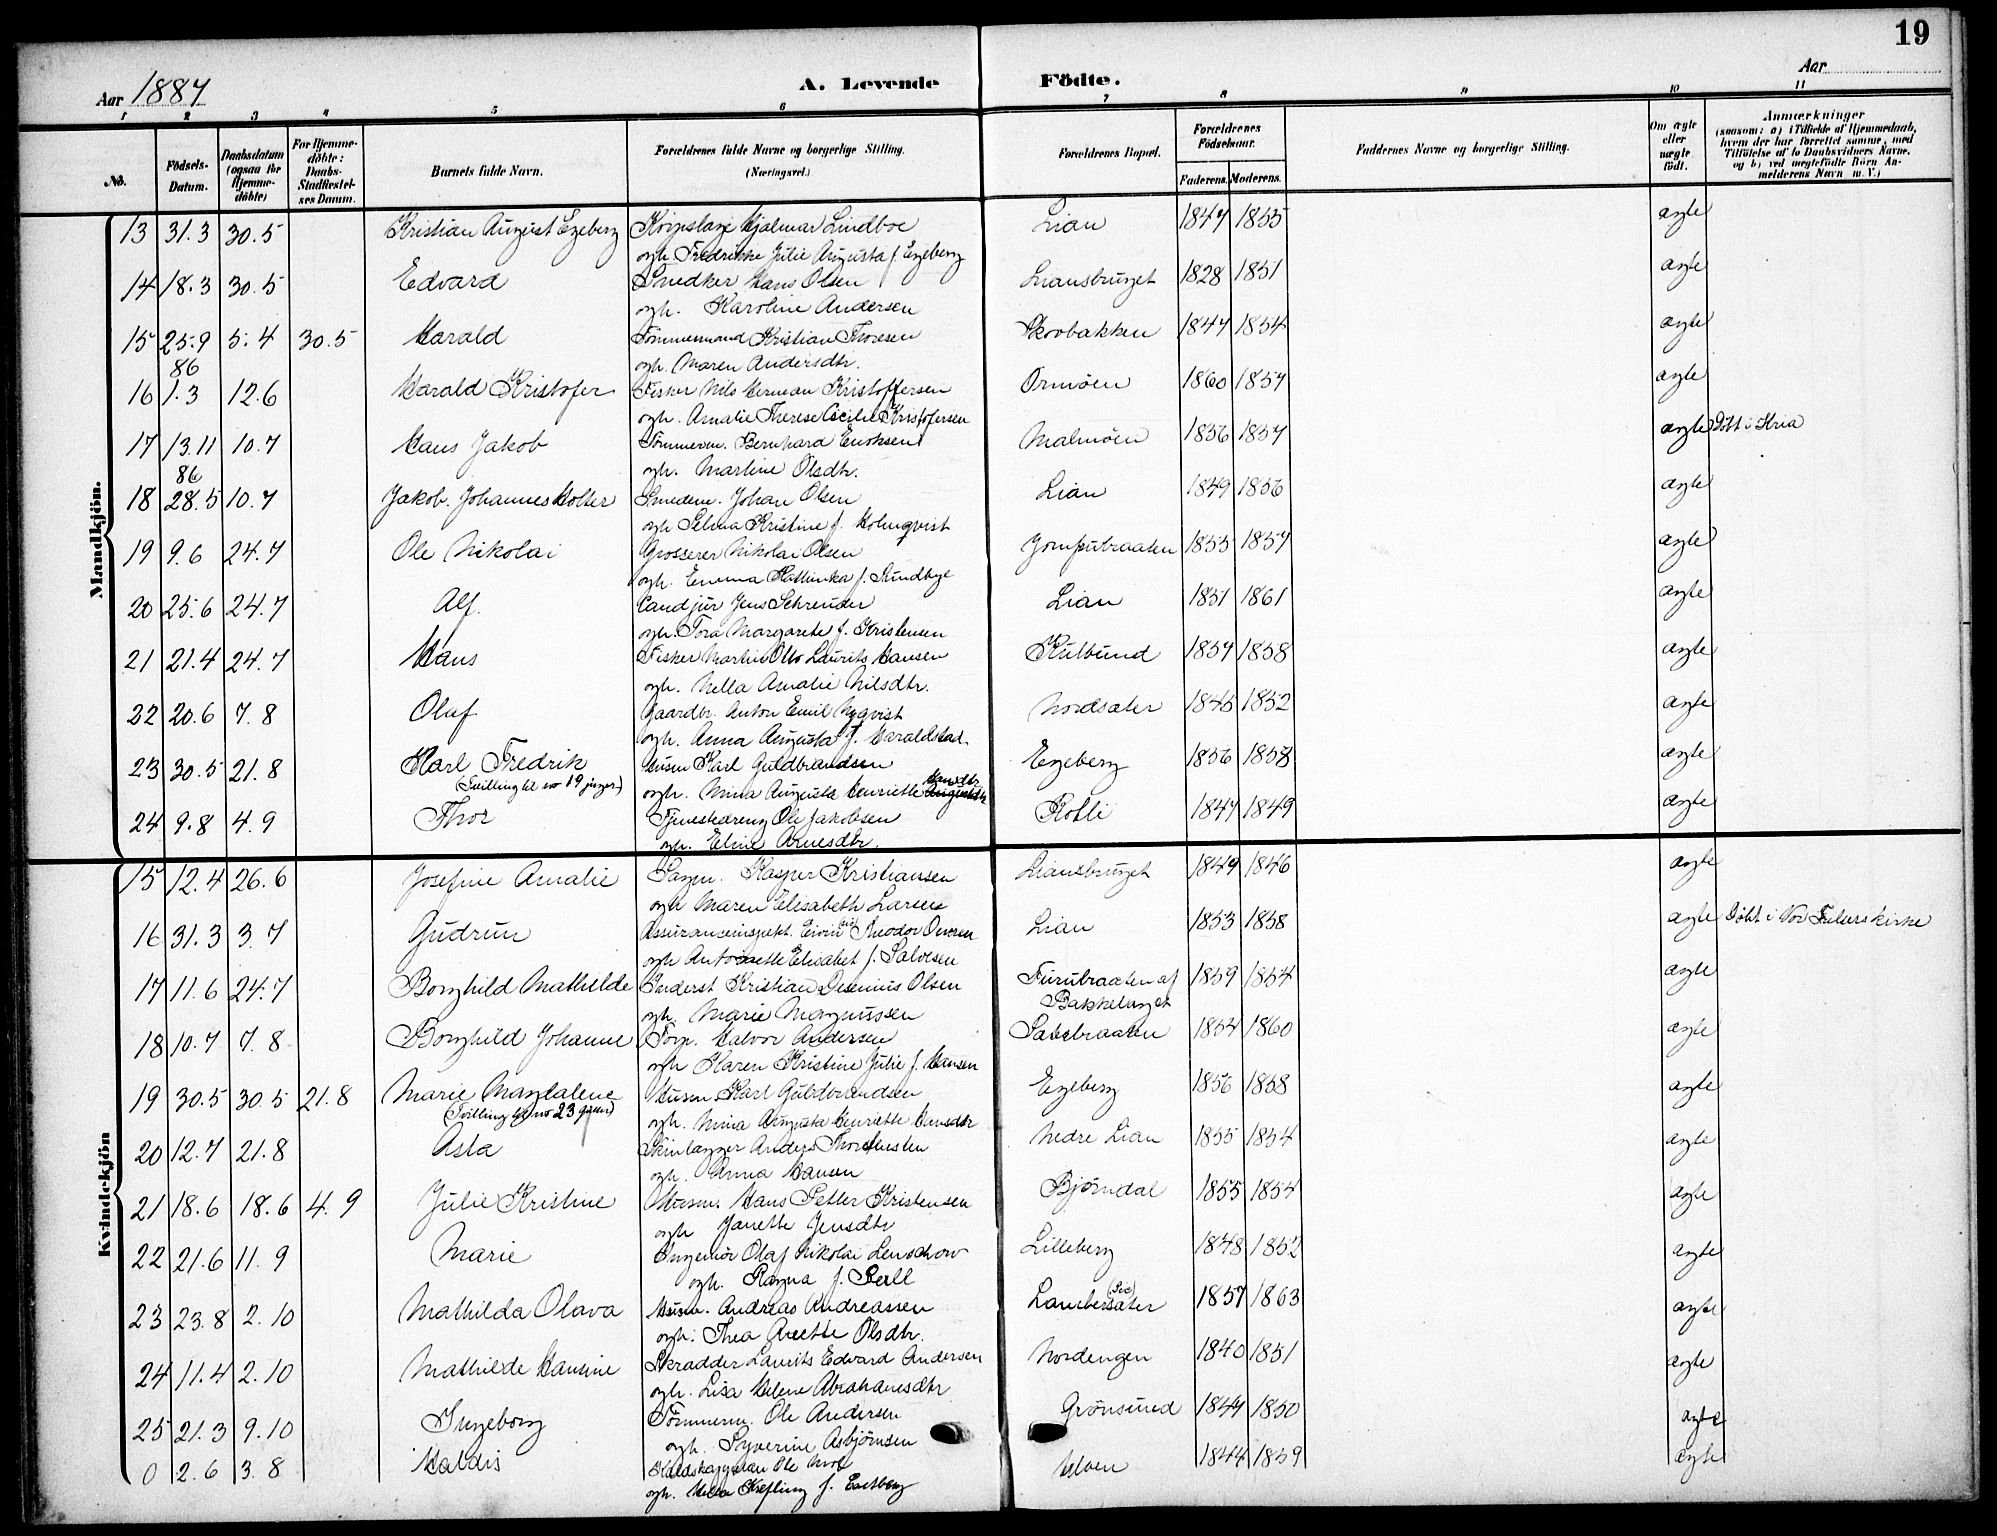 19
Aar 1887 A. Levende Födte. Aar
1 2 3 4 5 6 7 8 9 10 11
No. Födsels-Datum. Daabsdatum (ogsaa for Hjemmedöbte) For Hjemmedöbte: Daabs-Stadfæstelses Datum. Barnets fulde Navn. Forældrenes fulde Navne og borgerlige Stilling. (Næringsvei.) Forældrenes Bopæl. Forældrenes Födselsaar. Faderens. Moderens. Faddernes Navne og borgerlige Stilling. Om ægte eller uægte födt. Anmærkninger (saasom: a) i Tilfælde af Hjemmedaab, hvem der har forrettet samme, med Tilföielse af to Daabsvidners Navne. og b) ved uægtefödte Börn Anmelderens Navn m. V.)
Mandkjön.
13 31.3 30.5 Kristian August Egeberg Hjalmar Lindboe Lian 1847 1855 ægte
ogh. Fredrikke Julie Augusta f. Egeberg
14 18.3 30.5 Edvard Snedker Hans Olsen Liansbruget 1828 1851 ægte
ogh. Karoline Andersen
15 25.9 5.4 30.5 Harald Tömmermand Kristian Thoresen Skovbakken 1847 1854 ægte
86 ogh. Maren Andersdtr.
16 1.3 12.6 Harald Kristofer Fisker Nils Herman Kristoffersen Ormöen 1860 1857 ægte
ogh. Amalie Therese Cecilie Kristofersen
17 13.11 10.7 Hans Jakob Tömmerm. Bernhard Eriksen Malmöen 1856 1857 ægte Döbt i Kria
86 ogh. Martine Olsdtr.
18 28.5 10.7 Jakob Johannes Holter Smedem. Johan Olsen Lian 1849 1856 ægte
ogh Selma Kristine f. Holmqvist
19 9.6 24.7 Ole Nikolai Grosserer Nikolai Olsen Jomfrubraaten 1855 1857 ægte
ogh. Emma Kathinka f. Sundbye
20 25.6 24.7 Alf. Cand jur Jens Schreuder Lian 1851 1861 ægte
ogh. Tora Margarete f. Kristensen
21 21.4 24.7 Hans Fisker Martin Otto Laurits Hansen Kutbund 1857 1858 ægte
ogh. Nella Amalie Nilsdtr.
22 20.6 7.8 Olaf Gaardbr. Anton Emil Nyqvist Nordsater 1845 1852 ægte
ogh. Anna Augusta f. Haraldstad.
23 30.5 21.8 Karl Fredrik Husm Karl Guldbrandsen Egeberg 1856 1858 ægte
(Tvilling til no 19 piger) ogh. Mina Augusta Henriette Hansdtr
24 9.8 4.9 Thor Tjenestedreng Ole Jakobsen 1847 1849 ægte
ogh. Eline Arnesdtr.
Kvindekjön
15 12.4 26.6 Josefine Amalie Sagm. Kasper Kristiansen Liansbruget 1849 1846 ægte
ogh Maren Elisabeth Larsen
16 31.3 3.7 Gudrun Assuranseinspekt. Theodor Lian 1853 1858 ægte Döbt i Vor Frelsers kirke
ogh Antoinette Elisabet f. Salvesen
17 11.6 24.7 Borghild Mathilde Inderst Kristian Olsen Furubraaten af Bakkelaget 1859 1854 ægte
ogh. Marie Magnussen
18 10.7 7.8 Borghild Johanne Forp. Halvor Andersen 1854 1860 ægte
ogh Karen Kristine Julie f. Hansen
19 30.5 30.5 21.8 Marie Magdalene Husm Karl Guldbrandsen Egeberg 1856 1858 ægte
(Tvilling til no 23) ogh. Mina Augusta Henriette Hansdtr
20 12.7 21.8 Asta Anders Nedre Lian 1855 1854 ægte
ogh. Anna Hansen
21 18.6 18.6 4.9 Julie Kristine Husm. Hans Petter Kristensen Björndal 1855 1854 ægte
ogh Janette Jensdtr
22 21.6 11.9 Marie Ingeniör Olaf Nikolai Lenschow Lilleberg 1848 1852 ægte
ogh. Ragna f.
23 23.8 2.10 Mathilda Olava Husm. Andreas Andreassen Lambersæter 1857 1863 ægte
ogh. Thea Olsdtr.
24 11.4 2.10 Mathilde Hansine Skrædder Laurits Edvard Andersen Nordengen 1840 1851 ægte
ogh. Lisa Helene Abrahamsdtr
25 21.3 9.10 Ingeborg Tömmerm. Ole Andersen Grönsund 1847 1850 ægte
ogh. Syverine Asbjörnsen
0 2.6 3.8 Haldis Ole Ulven 1844 1859 ægte
ogh.